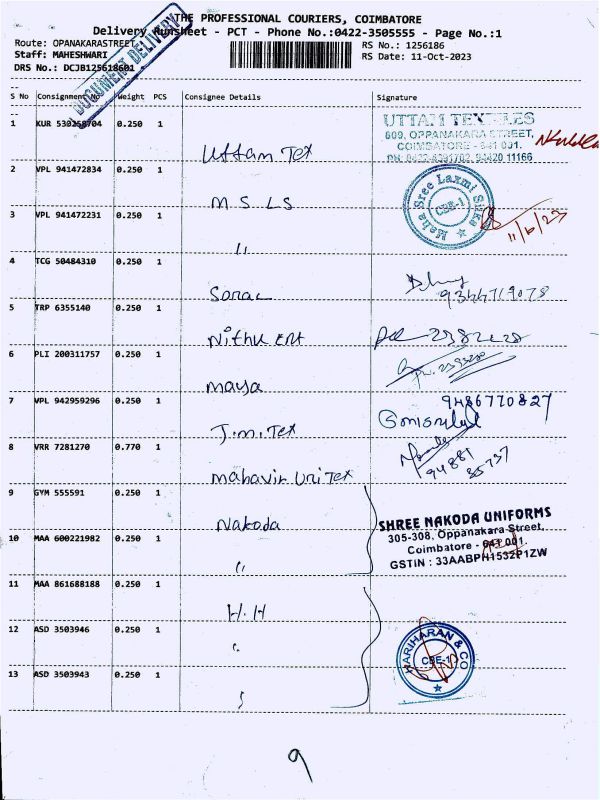 THE PROFESSIONAL COURIERS, COIMBATORE
Delivery Runsheet - PCT - Phone No.:0422-3505555 - Page No.:1
DOCUMENT DELIVERY
Route: OPANAKARASTREET RS No.: 1256186
Staff: MAHESHWARI RS Date: 11-Oct-2023
DRS No.: DCJB125618601
S No Consignment No Weight PCS Consignee Details Signature
1 KUR 0.250 1 UTTAM TEXTILES
609, OPPANAKARA STREET,
COIMBATORE - 641 001.
Uttam Tex
2 VPL 941472834 0.250 1
M S L S Maha Sree Laxmi CBE-1
3 VPL 941472231 0.250 1
"
4 TCG 50484310 0.250 1
9344719078
5 TRP 6355140 0.250 1
Nithu Ent
6 PLI 200311757 0.250 1
maya
7 VPL 942959296 0.250 1 9486770827
J.m. Tex
8 VRR 7281270 0.770 1
mahavir Uni Tex 94881
9 GYM 555591 0.250 1
Nakoda SHREE NAKODA UNIFORMS
305-308, Oppanakara Street,
10 MAA 600221982 0.250 1 Coimbatore - 641 001.
" GSTIN : 33AABPH1532P1ZW
11 MAA 861688188 0.250 1
H.H
12 ASD 3503946 0.250 1 HARIHARAN & CO
" CBE-1
13 ASD 3503943 0.250 1
9